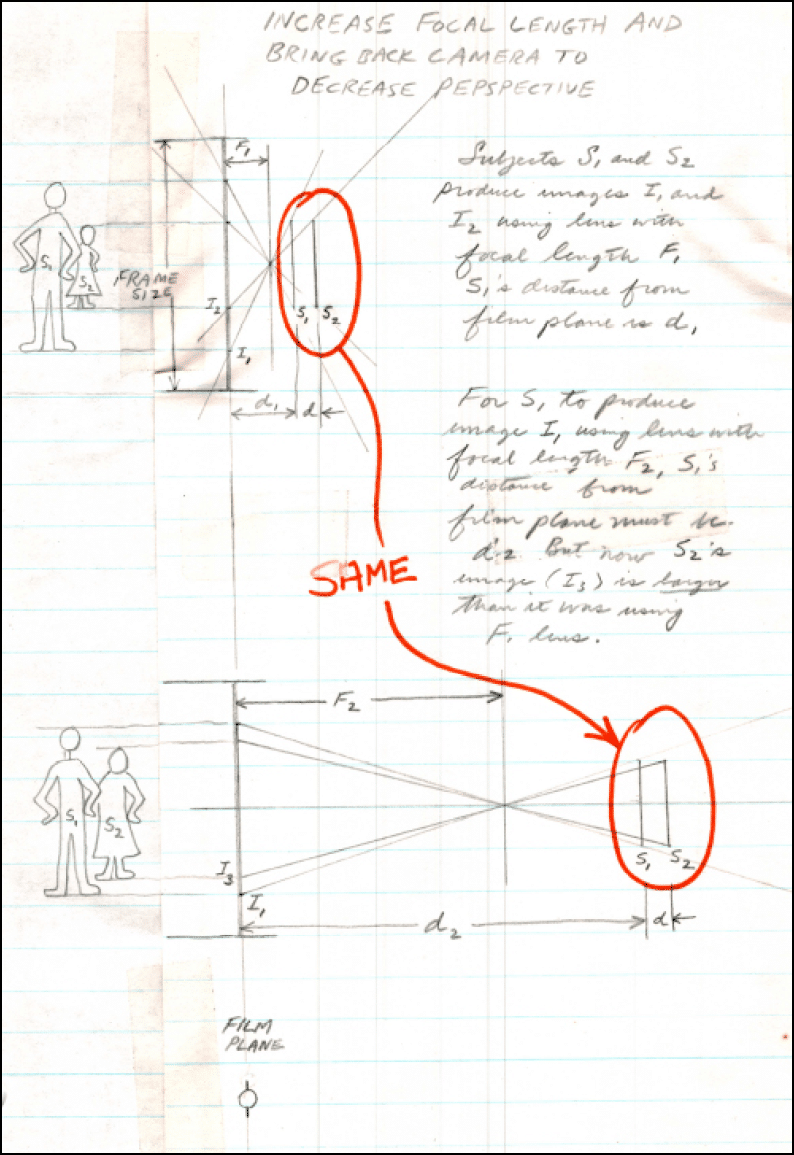 INCREASE FOCAL LENGTH AND
BRING BACK CAMERA TO
DECREASE PEPSPECTIVE
F₁
Subjects S₁ and S₂
produce images I₁ and
I₂ using lens with
focal length F₁
S₁'s distance from
film plane is d₁
S₁
S₂
FRAME
SIZE
I₂
S₁ S₂
I₁
d₁ d
For S₁ to produce
image I₁ using lens with
focal length F₂, S₁'s
distance from
film plane must be
d₂ But now S₂'s
image (I₃) is larger
than it was using
F₁ lens.
SAME
F₂
S₁
S₂
S₁ S₂
I₃
I₁
d₂ d
FILM
PLANE